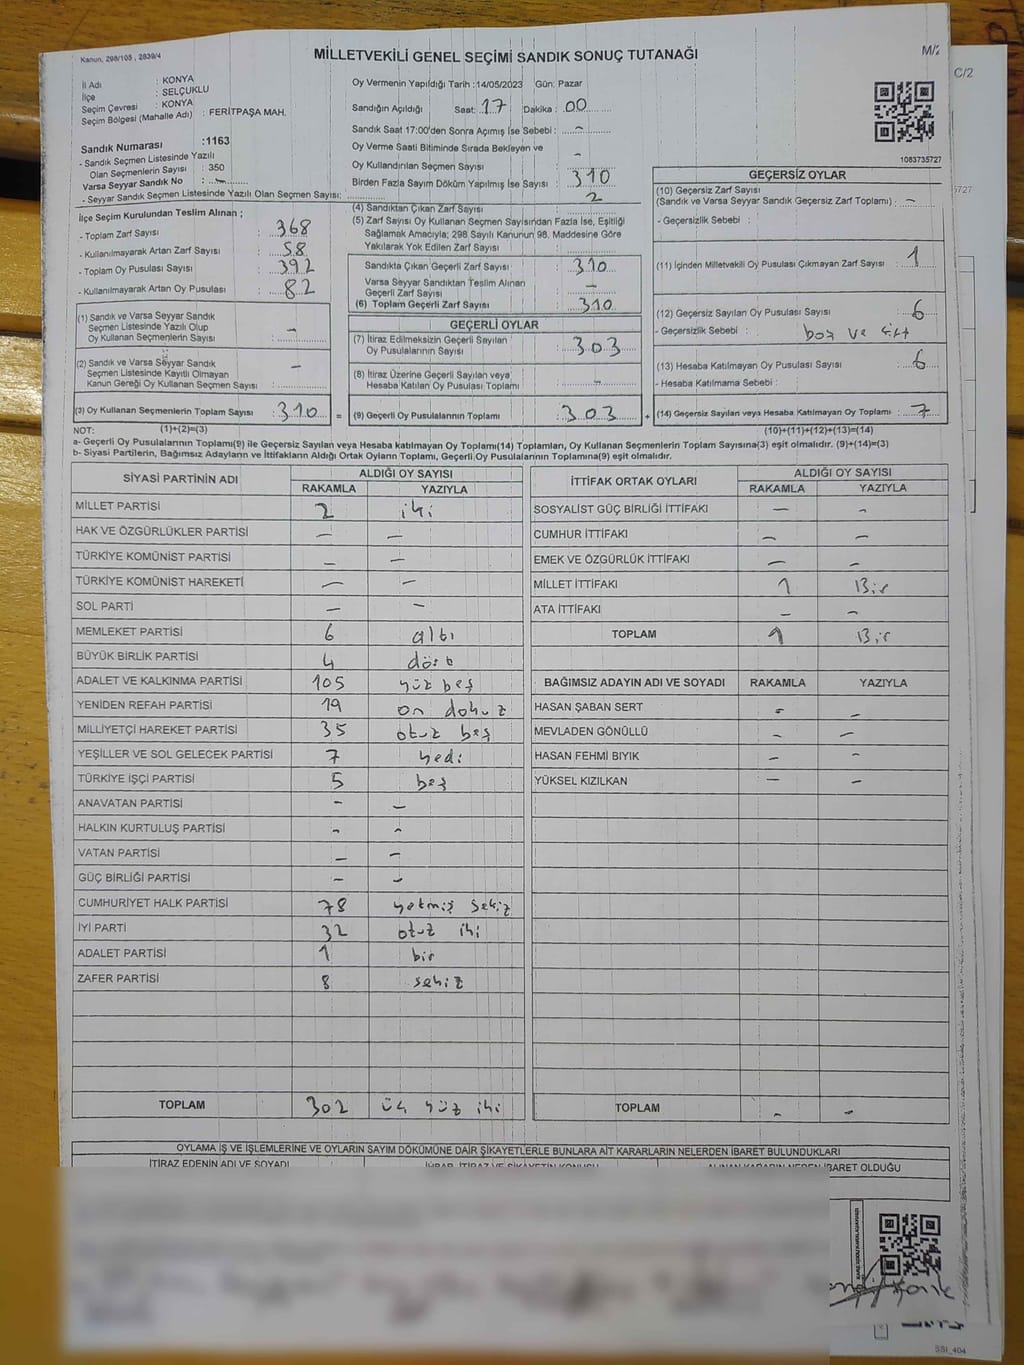 Kanun, 298/105 , 2839/4
MİLLETVEKİLİ GENEL SEÇİMİ SANDIK SONUÇ TUTANAĞI
C/2
İl Adı : KONYA
İlçe : SELÇUKLU
Seçim Çevresi : KONYA
Seçim Bölgesi (Mahalle Adı) : FERİTPAŞA MAH.
Sandık Numarası :1163
- Sandık Seçmen Listesinde Yazılı
Olan Seçmenlerin Sayısı : 350
Varsa Seyyar Sandık No : -
- Seyyar Sandık Seçmen Listesinde Yazılı Olan Seçmen Sayısı:
Oy Vermenin Yapıldığı Tarih :14/05/2023 Gün: Pazar
Sandığın Açıldığı Saat: 17 Dakika : 00
Sandık Saat 17:00'den Sonra Açımış İse Sebebi : -
Oy Verme Saati Bitiminde Sırada Bekleyen ve
Oy Kullandırılan Seçmen Sayısı : -
Birden Fazla Sayım Döküm Yapılmış İse Sayısı : 310
1083735727
İlçe Seçim Kurulundan Teslim Alınan ;
- Toplam Zarf Sayısı : 368
- Kullanılmayarak Artan Zarf Sayısı : 58
- Toplam Oy Pusulası Sayısı : 392
- Kullanılmayarak Artan Oy Pusulası : 82
(1) Sandık ve Varsa Seyyar Sandık
Seçmen Listesinde Yazılı Olup
Oy Kullanan Seçmenlerin Sayısı : -
(2) Sandık ve Varsa Seyyar Sandık
Seçmen Listesinde Kayıtlı Olmayan
Kanun Gereği Oy Kullanan Seçmen Sayısı : -
(3) Oy Kullanan Seçmenlerin Toplam Sayısı : 310 =
(4) Sandıktan Çıkan Zarf Sayısı : 2
(5) Zarf Sayısı Oy Kullanan Seçmen Sayısından Fazla İse, Eşitliği
Sağlamak Amacıyla; 298 Sayılı Kanunun 98. Maddesine Göre
Yakılarak Yok Edilen Zarf Sayısı :
Sandıkta Çıkan Geçerli Zarf Sayısı : 310
Varsa Seyyar Sandıktan Teslim Alınan
Geçerli Zarf Sayısı : -
(6) Toplam Geçerli Zarf Sayısı : 310
GEÇERLİ OYLAR
(7) İtiraz Edilmeksizin Geçerli Sayılan
Oy Pusulalarının Sayısı : 303
(8) İtiraz Üzerine Geçerli Sayılan veya
Hesaba Katılan Oy Pusulası Toplamı : -
(9) Geçerli Oy Pusulalarının Toplamı : 303 +
GEÇERSİZ OYLAR
(10) Geçersiz Zarf Sayısı
(Sandık ve Varsa Seyyar Sandık Geçersiz Zarf Toplamı) : -
- Geçersizlik Sebebi :
(11) İçinden Milletvekili Oy Pusulası Çıkmayan Zarf Sayısı : 1
(12) Geçersiz Sayılan Oy Pusulası Sayısı : 6
- Geçersizlik Sebebi : boş ve çift
(13) Hesaba Katılmayan Oy Pusulası Sayısı : 6
- Hesaba Katılmama Sebebi :
(14) Geçersiz Sayılan veya Hesaba Katılmayan Oy Toplamı : 7
NOT: (1)+(2)=(3) (10)+(11)+(12)+(13)=(14)
a- Geçerli Oy Pusulalarının Toplamı(9) ile Geçersiz Sayılan veya Hesaba katılmayan Oy Toplamı(14) Toplamları, Oy Kullanan Seçmenlerin Toplam Sayısına(3) eşit olmalıdır. (9)+(14)=(3)
b- Siyasi Partilerin, Bağımsız Adayların ve İttifakların Aldığı Ortak Oyların Toplamı, Geçerli Oy Pusulalarının Toplamına(9) eşit olmalıdır.
SİYASİ PARTİNİN ADI ALDIĞI OY SAYISI
RAKAMLA YAZIYLA
MİLLET PARTİSİ 2 iki
HAK VE ÖZGÜRLÜKLER PARTİSİ - -
TÜRKİYE KOMÜNİST PARTİSİ - -
TÜRKİYE KOMÜNİST HAREKETİ - -
SOL PARTİ - -
MEMLEKET PARTİSİ 6 altı
BÜYÜK BİRLİK PARTİSİ 4 dört
ADALET VE KALKINMA PARTİSİ 105 yüz beş
YENİDEN REFAH PARTİSİ 19 on dokuz
MİLLİYETÇİ HAREKET PARTİSİ 35 otuz beş
YEŞİLLER VE SOL GELECEK PARTİSİ 7 yedi
TÜRKİYE İŞÇİ PARTİSİ 5 beş
ANAVATAN PARTİSİ - -
HALKIN KURTULUŞ PARTİSİ - -
VATAN PARTİSİ - -
GÜÇ BİRLİĞİ PARTİSİ - -
CUMHURİYET HALK PARTİSİ 78 yetmiş sekiz
İYİ PARTİ 32 otuz iki
ADALET PARTİSİ 1 bir
ZAFER PARTİSİ 8 sekiz
TOPLAM 302 üç yüz iki
İTTİFAK ORTAK OYLARI ALDIĞI OY SAYISI
RAKAMLA YAZIYLA
SOSYALİST GÜÇ BİRLİĞİ İTTİFAKI - -
CUMHUR İTTİFAKI - -
EMEK VE ÖZGÜRLÜK İTTİFAKI - -
MİLLET İTTİFAKI 1 Bir
ATA İTTİFAKI - -
TOPLAM 1 Bir
BAĞIMSIZ ADAYIN ADI VE SOYADI RAKAMLA YAZIYLA
HASAN ŞABAN SERT - -
MEVLADEN GÖNÜLLÜ - -
HASAN FEHMİ BIYIK - -
YÜKSEL KIZILKAN - -
TOPLAM - -
OYLAMA İŞ VE İŞLEMLERİNE VE OYLARIN SAYIM DÖKÜMÜNE DAİR ŞİKAYETLERLE BUNLARA AİT KARARLARIN NELERDEN İBARET BULUNDUKLARI
İTİRAZ EDENİN ADI VE SOYADI İHBAR, İTİRAZ VE ŞİKAYETİN KONUSU ALINAN KARARIN NEDEN İBARET OLDUĞU